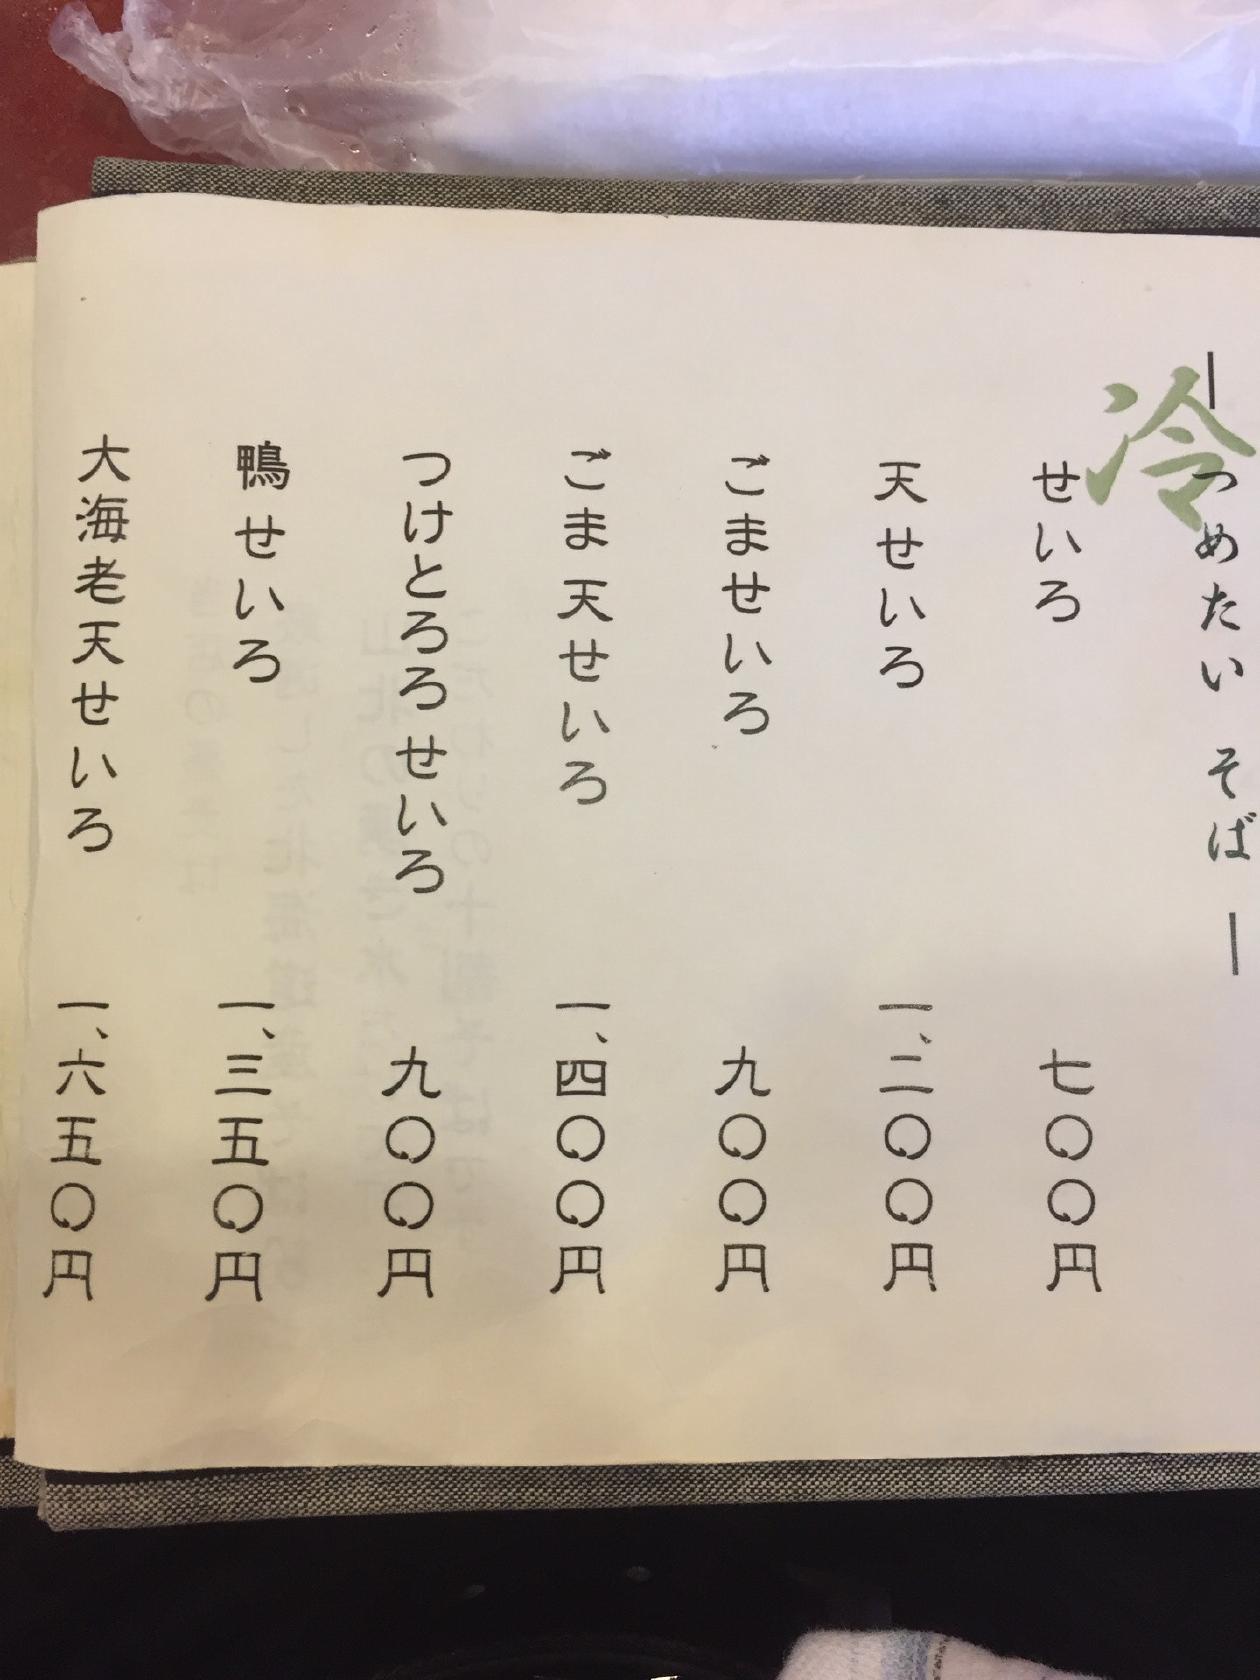 冷
― つめたい そば ―
せいろ 七〇〇円
天せいろ 一、二〇〇円
ごませいろ 九〇〇円
ごま天せいろ 一、四〇〇円
つけとろろせいろ 九〇〇円
鴨せいろ 一、三五〇円
大海老天せいろ 一、六五〇円